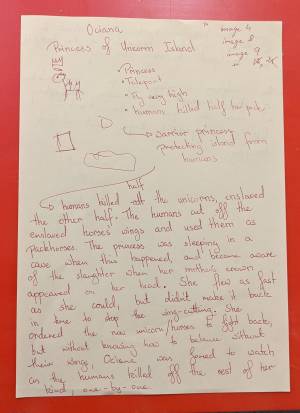 Ociana
Princess of Unicorn Island
image
image 8
image 9
• Princess
• Teleport
• Fly very high
• humans killed half her
Warrior princess
protecting island from
humans
half
humans killed the unicorns, enslaved
the other half. The humans cut off the
enslaved horses wings and used them as
packhorses. The princess was sleeping in a
cave when this happened, and became aware
of the slaughter when her mother's crown
appeared on her head. She flew as fast
as she could, but didn't make it back
in time to stop the wing-cutting. She
ordered the now unicorn/horses to fight back,
but without knowing how to balance without
their wings, Ociana was forced to watch
as the humans killed off the rest of her
kind, one-by-one.